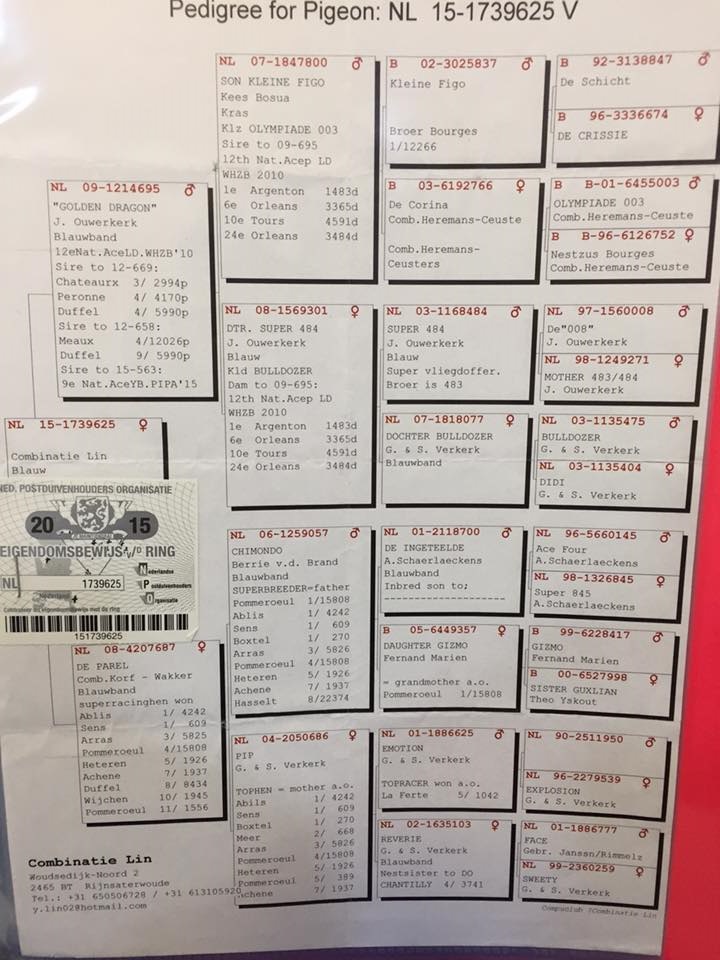 Pedigree for Pigeon: NL 15-1739625 V
NL 15-1739625 ♀
Combinatie Lin
Blauw
NED. POSTDUIVENHOUDERS ORGANISATIE
20 15
EIGENDOMSBEWIJS V/D RING
Nederlandse
NL 1739625 Postduivenhouders
Organisatie
151739625
NL 09-1214695 ♂
"GOLDEN DRAGON"
J. Ouwerkerk
Blauwband
12eNat.AceLD.WHZB'10
Sire to 12-669:
Chateaurx 3/ 2994p
Peronne 4/ 4170p
Duffel 4/ 5990p
Sire to 12-658:
Meaux 4/12026p
Duffel 9/ 5990p
Sire to 15-563:
9e Nat.AceYB.PIPA'15
NL 08-4207687 ♀
DE PAREL
Comb.Korf - Wakker
Blauwband
superracinghen won
Ablis 1/ 4242
Sens 1/ 609
Arras 3/ 5825
Pommeroeul 4/15808
Heteren 5/ 1926
Achene 7/ 1937
Duffel 8/ 8434
Wijchen 10/ 1945
Pommeroeul 11/ 1556
NL 07-1847800 ♂
SON KLEINE FIGO
Kees Bosua
Kras
Klz OLYMPIADE 003
Sire to 09-695
12th Nat.Acep LD
WHZB 2010
1e Argenton 1483d
6e Orleans 3365d
10e Tours 4591d
24e Orleans 3484d
NL 08-1569301 ♀
DTR. SUPER 484
J. Ouwerkerk
Blauw
Kld BULLDOZER
Dam to 09-695:
12th Nat.Acep LD
WHZB 2010
1e Argenton 1483d
6e Orleans 3365d
10e Tours 4591d
24e Orleans 3484d
NL 06-1259057 ♂
CHIMONDO
Berrie v.d. Brand
Blauwband
SUPERBREEDER=father
Pommeroeul 1/15808
Ablis 1/ 4242
Sens 1/ 609
Boxtel 1/ 270
Arras 3/ 5826
Pommeroeul 4/15808
Heteren 5/ 1926
Achene 7/ 1937
Hasselt 8/22374
NL 04-2050686 ♀
PIP
G. & S. Verkerk
TOPHEN = mother a.o.
Abils 1/ 4242
Sens 1/ 609
Boxtel 1/ 270
Meer 2/ 668
Arras 3/ 5826
Pommeroeul 4/15808
Heteren 5/ 1926
Pommeroeul 5/ 389
Achene 7/ 1937
B 02-3025837 ♂
Kleine Figo
Broer Bourges
1/12266
B 03-6192766 ♀
De Corina
Comb.Heremans-Ceuste
Comb.Heremans-
Ceusters
NL 03-1168484 ♂
SUPER 484
J. Ouwerkerk
Blauw
Super vliegdoffer.
Broer is 483
NL 07-1818077 ♀
DOCHTER BULLDOZER
G. & S. Verkerk
Blauwband
NL 01-2118700 ♂
DE INGETEELDE
A.Schaerlaeckens
Blauwband
Inbred son to;
--------------------
B 05-6449357 ♀
DAUGHTER GIZMO
Fernand Marien
= grandmother a.o.
Pommeroeul 1/15808
NL 01-1886625 ♂
EMOTION
G. & S. Verkerk
TOPRACER won a.o.
La Ferte 5/ 1042
NL 02-1635103 ♀
REVERIE
G. & S. Verkerk
Blauwband
Nestsister to DO
CHANTILLY 4/ 3741
B 92-3138847 ♂
De Schicht
B 96-3336674 ♀
DE CRISSIE
B B-01-6455003 ♂
OLYMPIADE 003
Comb.Heremans-Ceuste
B B-96-6126752 ♀
Nestzus Bourges
Comb.Heremans-Ceuste
NL 97-1560008 ♂
De"008"
J. Ouwerkerk
NL 98-1249271 ♀
MOTHER 483/484
J. Ouwerkerk
NL 03-1135475 ♂
BULLDOZER
G. & S. Verkerk
NL 03-1135404 ♀
DIDI
G. & S. Verkerk
NL 96-5660145 ♂
Ace Four
A.Schaerlaeckens
NL 98-1326845 ♀
Super 845
A.Schaerlaeckens
B 99-6228417 ♂
GIZMO
Fernand Marien
B 00-6527998 ♀
SISTER GUXLIAN
Theo Yskout
NL 90-2511950 ♂
NL 96-2279539 ♀
EXPLOSION
G. & S. Verkerk
NL 01-1886777 ♂
FACE
Gebr. Janssn/Rimmelz
NL 99-2360259 ♀
SWEETY
G. & S. Verkerk
Combinatie Lin
Woudsedijk-Noord 2
2465 BT Rijnsaterwoude
Tel.: +31 650506728 / +31 613105920
y.lin02@hotmail.com
Compuclub ?Combinatie Lin